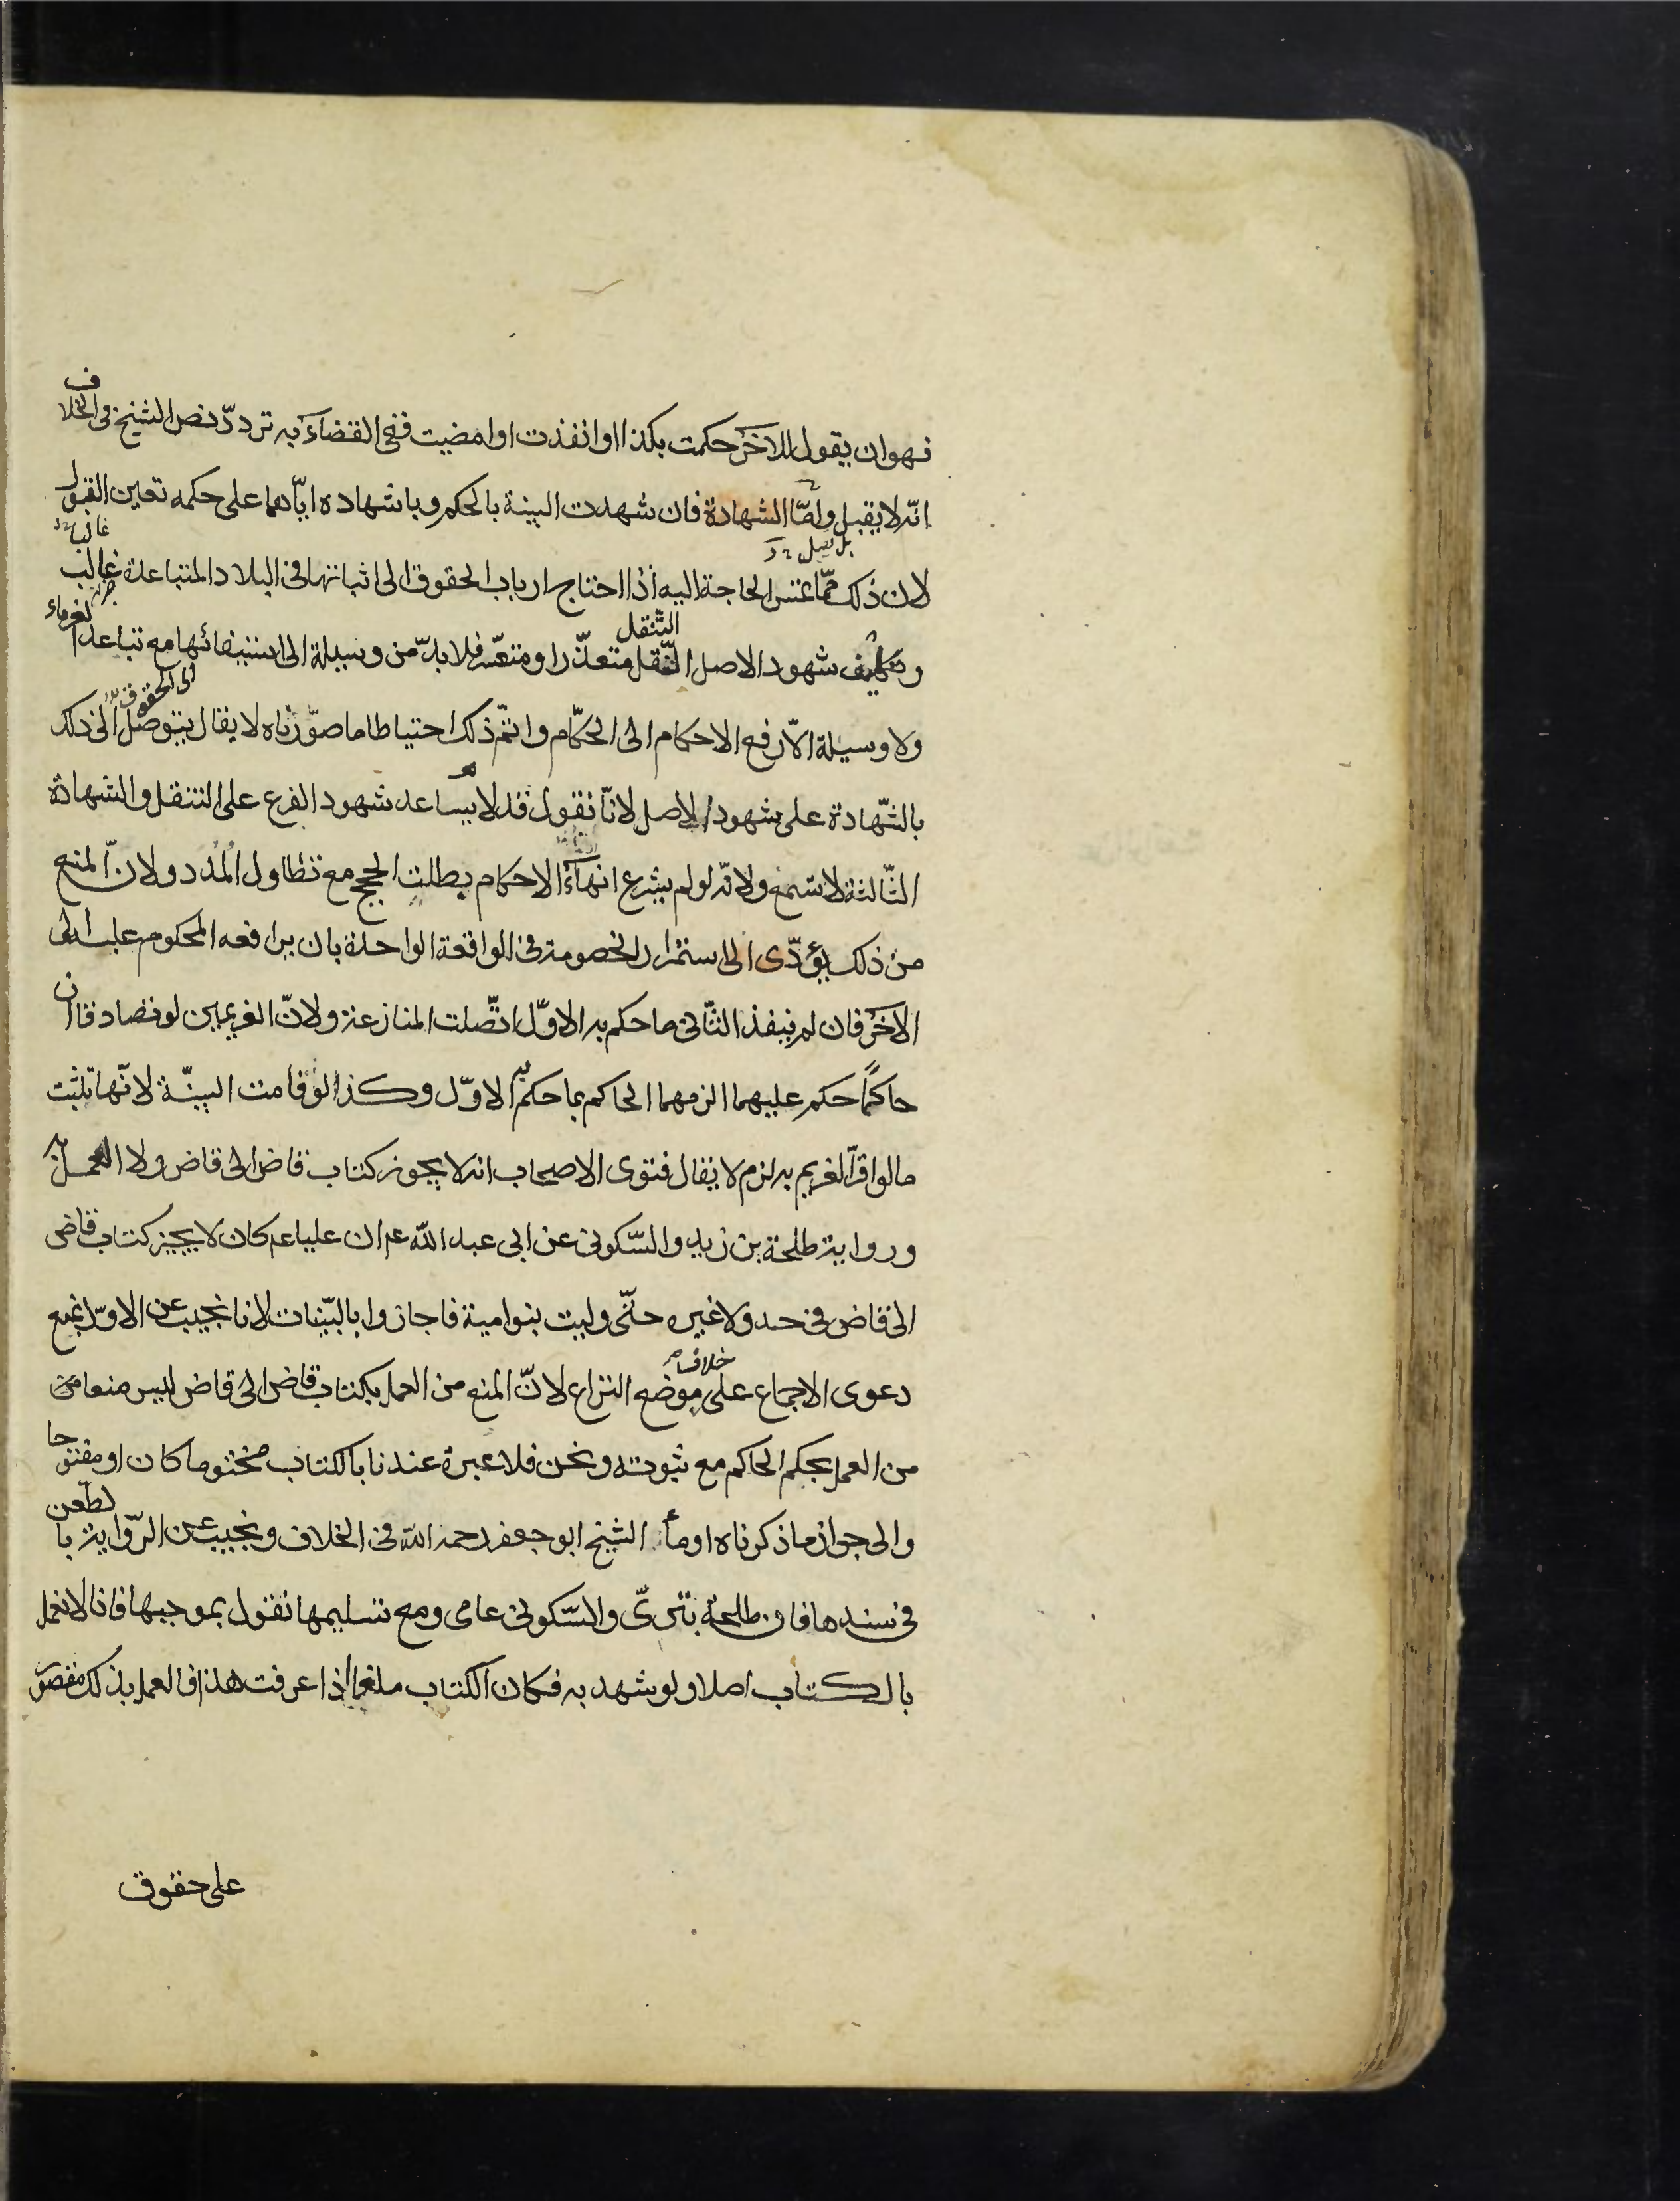 فهو ان يقول للاخر حكمت بكذا او انفذت او امضيت ففى القضاء به تردد نص الشيخ فى الخلاف
انه لا يقبل واما الشهادة فان شهدت البينة بالحكم وباشهاده اياهما على حكمه تعين القبول
لان ذلك مما تمس الحاجة اليه اذا احتاج ارباب الحقوق الى اثباتها فى البلاد المتباعدة غالب
وتكليف شهود الاصل التنقل متعذر او متعسر فلا بد من وسيلة الى استيفائها مع تباعد الغرماء
ولا وسيلة الا رفع الاحكام الى الحكام واتم ذلك احتياطا ما صورناه لا يقال يتوصل الى ذلك
بالشهادة على شهود الاصل لانا نقول قد لا يساعد شهود الفرع على التنقل والشهادة
الثالثة لا تسمع ولانه لو لم يشرع انهاء الاحكام بطلت الحجج مع تطاول المدد ولان المنع
من ذلك يؤدى الى استمرار الخصومة فى الواقعة الواحدة بان يرافعه المحكوم عليه الى
الاخر فان لم ينفذ الثانى ما حكم به الاول اتصلت المنازعة ولان الغريمين لو تصادقا ان
حاكما حكم عليهما الزمهما الحاكم بما حكم به الاول وكذا لو قامت البينة لانها تثبت
ما لو اقر الغريم به لزم لا يقال فتوى الاصحاب انه لا يجوز كتاب قاض الى قاض ولا العمل به
ورواية طلحة بن زيد والسكونى عن ابى عبد الله عم ان عليا عم كان لا يجيز كتاب قاض
الى قاض فى حد ولا غيره حتى وليت بنو امية فاجازوا بالبينات لانا نجيب عن الاول بمنع
دعوى الاجماع على خلافه موضع النزاع لان المنع من العمل بكتاب قاض الى قاض ليس منعا من
من العمل بحكم الحاكم مع ثبوته ونحن فلا عبرة عندنا بالكتاب مختوما كان او مفتوحا
والى جواز ما ذكرناه اومأ الشيخ ابو جعفر رحمه الله فى الخلاف ونجيب عن الرواية بالطعن
فى سندها فان طلحة بترى والسكونى عامى ومع تسليمها نقول بموجبها فانا لا نعمل
بالكتاب اصلا ولو شهد به فكان الكتاب ملغى اذا عرفت هذا فالعمل بذلك مقصور
على حقوق